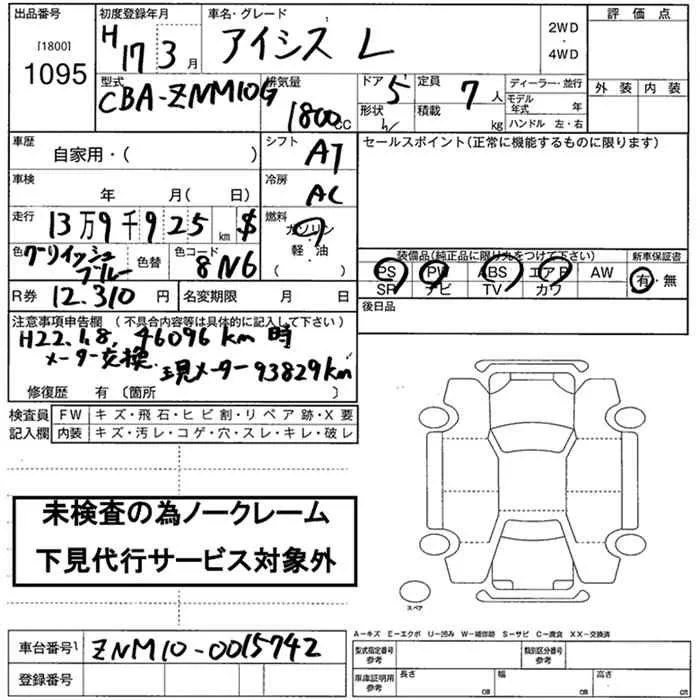 出品番号 初度登録年月 車名・グレード 評価点
[1800] 1095 H 17 3月 アイシス L 2WD・4WD
外装 内装
型式 CBA-ZNM10G 排気量 1800cc ドア 5 形状 定員 7人 積載 kg ディーラー・並行
モデル年式 年
ハンドル 左・右
車歴 自家用・( ) シフト AT セールスポイント(正常に機能するものに限ります)
車検 年 月( 日) 冷房 AC
走行 13万9千925 km $ 燃料 ガソリン・軽・油
色 グーリイッシュブルー 色替 色コード 8N6
装備品(純正品に限り丸をつけて下さい) 新車保証書
PS PW ABS エアB AW 有・無
SR ナビ TV カワ
R券 12,310円 名変期限 月 日 後日品
注意事項申告欄 (不具合内容等は具体的に記入して下さい)
H22.1.8, 46096km時
メーター交換. 現メーター93829km
修復歴 有 〔箇所 〕
検査員記入欄 FW キズ・飛石・ヒビ割・リペア跡・X要
内装 キズ・汚レ・コゲ・穴・スレ・キレ・破レ
未検査の為ノークレーム
下見代行サービス対象外
スペア
A-キズ E-エクボ U-凹み W-補修跡 S-サビ C-腐食 XX-交換済
車台番号 ZNM10-0015742 型式指定番号参考 類別区分番号参考
登録番号 車庫証明用参考 長さ cm 幅 cm 高さ cm